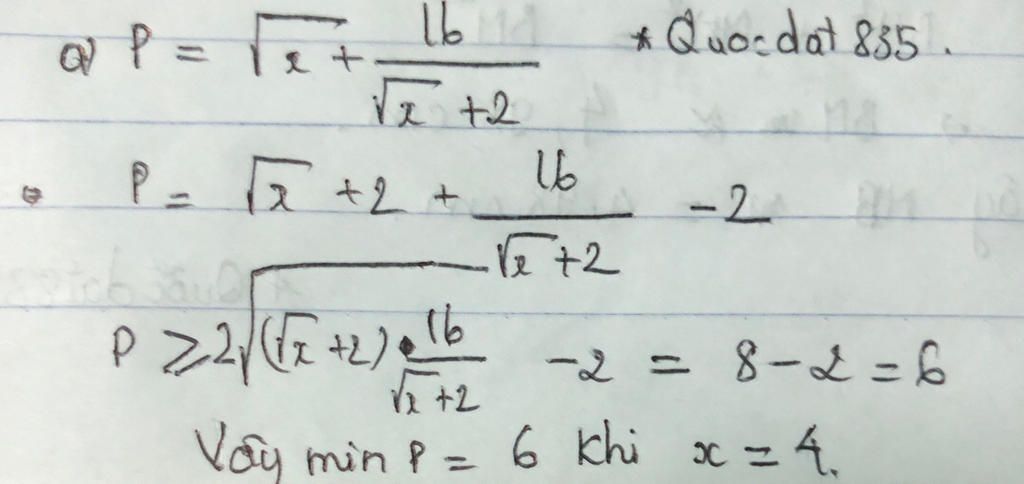 a) P = √x + 16/(√x + 2) * Quocdat 835.
⇔ P = √x + 2 + 16/(√x + 2) - 2
P ≥ 2√((√x + 2) • 16/(√x + 2)) - 2 = 8 - 2 = 6
Vậy min P = 6 khi x = 4.